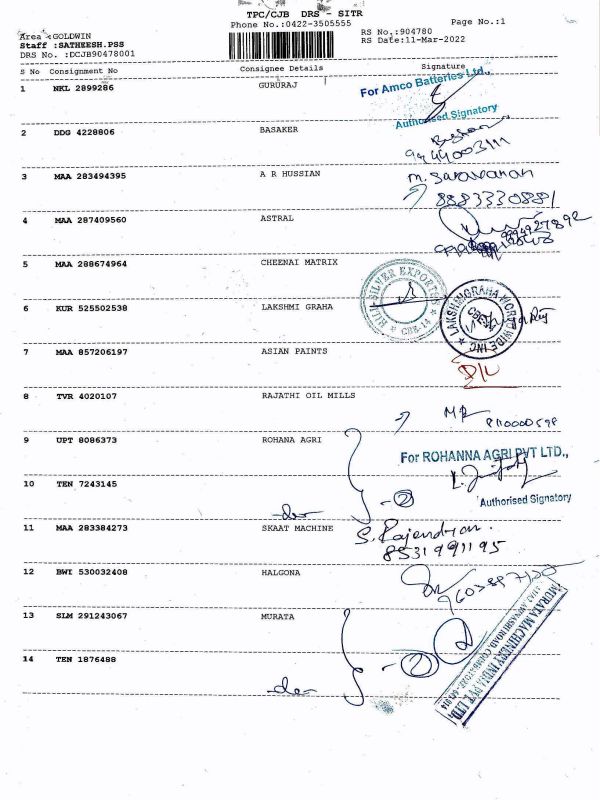 TPC/CJB DRS - SITR
Phone No.:0422-3505555
Page No.:1
Area :GOLDWIN
Staff :SATHEESH.PSS
DRS No. :DCJB90478001
RS No.:904780
RS Date:11-Mar-2022
S No Consignment No Consignee Details Signature
1 NKL 2899286 GURURAJ
For Amco Batteries Ltd.,
Authorised Signatory
2 DDG 4228806 BASAKER
9944003111
3 MAA 283494395 A R HUSSIAN M. Saravanan
8883330881
4 MAA 287409560 ASTRAL
5 MAA 288674964 CHEENAI MATRIX
SILVER EXPORTS
CBE-14
6 KUR 525502538 LAKSHMI GRAHA
LAKSHMIGRAHA WORLD WIDE INC
7 MAA 857206197 ASIAN PAINTS
8 TVR 4020107 RAJATHI OIL MILLS
9 UPT 8086373 ROHANA AGRI
For ROHANNA AGRI PVT LTD.,
10 TEN 7243145 -do- -②
Authorised Signatory
11 MAA 283384273 SKAAT MACHINE S. Rajendran.
8531991195
12 BWI 530032408 HALGONA
13 SLM 291243067 MURATA
MURATA MACHINERY INDIA PVT. LTD.
14 TEN 1876488 -do- -②